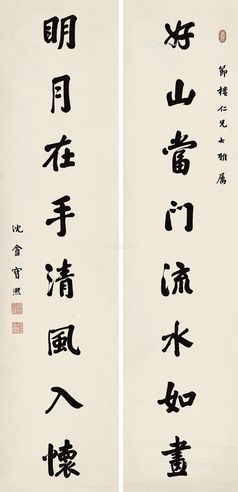 好山當门流水如畫
節樓仁兄大雅屬
明月在手清風入懷
沈盦寶熙